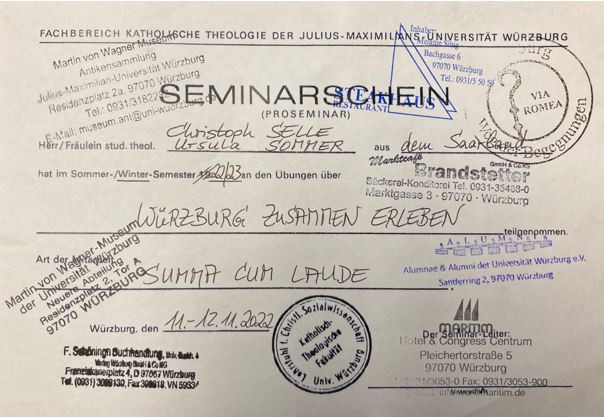 FACHBEREICH KATHOLISCHE THEOLOGIE DER JULIUS-MAXIMILIANS-UNIVERSITÄT WÜRZBURG
Martin von Wagner Museum
Antikensammlung
Julius-Maximilian-Universität Würzburg
Residenzplatz 2a, 97070 Würzburg
Tel.: 0931/31822
E-Mail: museum.ant@uni-wuerzburg.de
Inhaber:
Melanie
Bachgasse 6
97070 Würzburg
Tel.: 0931/5 50 50
STEAKHAUS
RESTAURANT
VIA
ROMEA
Weg der Begegnungen
SEMINARSCHEIN
(PROSEMINAR)
Christoph SELLE
Herr/Fräulein stud. theol. Ursula SOMMER aus dem Saarland
hat im Sommer-/Winter-Semester 22/23 an den Übungen über
Marktcafé
Brandstetter
GmbH & Co.KG
Bäckerei-Konditorei Tel. 0931-35488-0
Marktgasse 3 - 97070 - Würzburg
WÜRZBURG ZUSAMMEN ERLEBEN
teilgenommen.
Martin von Wagner-Museum
der Universität Würzburg
Neuere Abteilung
Residenzplatz 2, Tor A
97070 WÜRZBURG
Art der
SUMMA CUM LAUDE
ALUMNI
Alumnae & Alumni der Universität Würzburg e.V.
Sanderring 2, 97070 Würzburg
Würzburg, den 11.-12.11.2022
Lehrstuhl f. Christl. Sozialwissenschaft
Katholisch-
Theologische
Fakultät
Univ. Würzburg
MARITIM
Der Seminar-Leiter:
Hotel & Congress Centrum
Pleichertorstraße 5
97070 Würzburg
/3053-0 Fax: 0931/3053-900
maritim.de
F. Schöningh Buchhandlung,
Verlag Würzburg GmbH & Co KG
Franziskanerplatz 4, D 97067 Würzburg
Tel. (0931) Fax VN